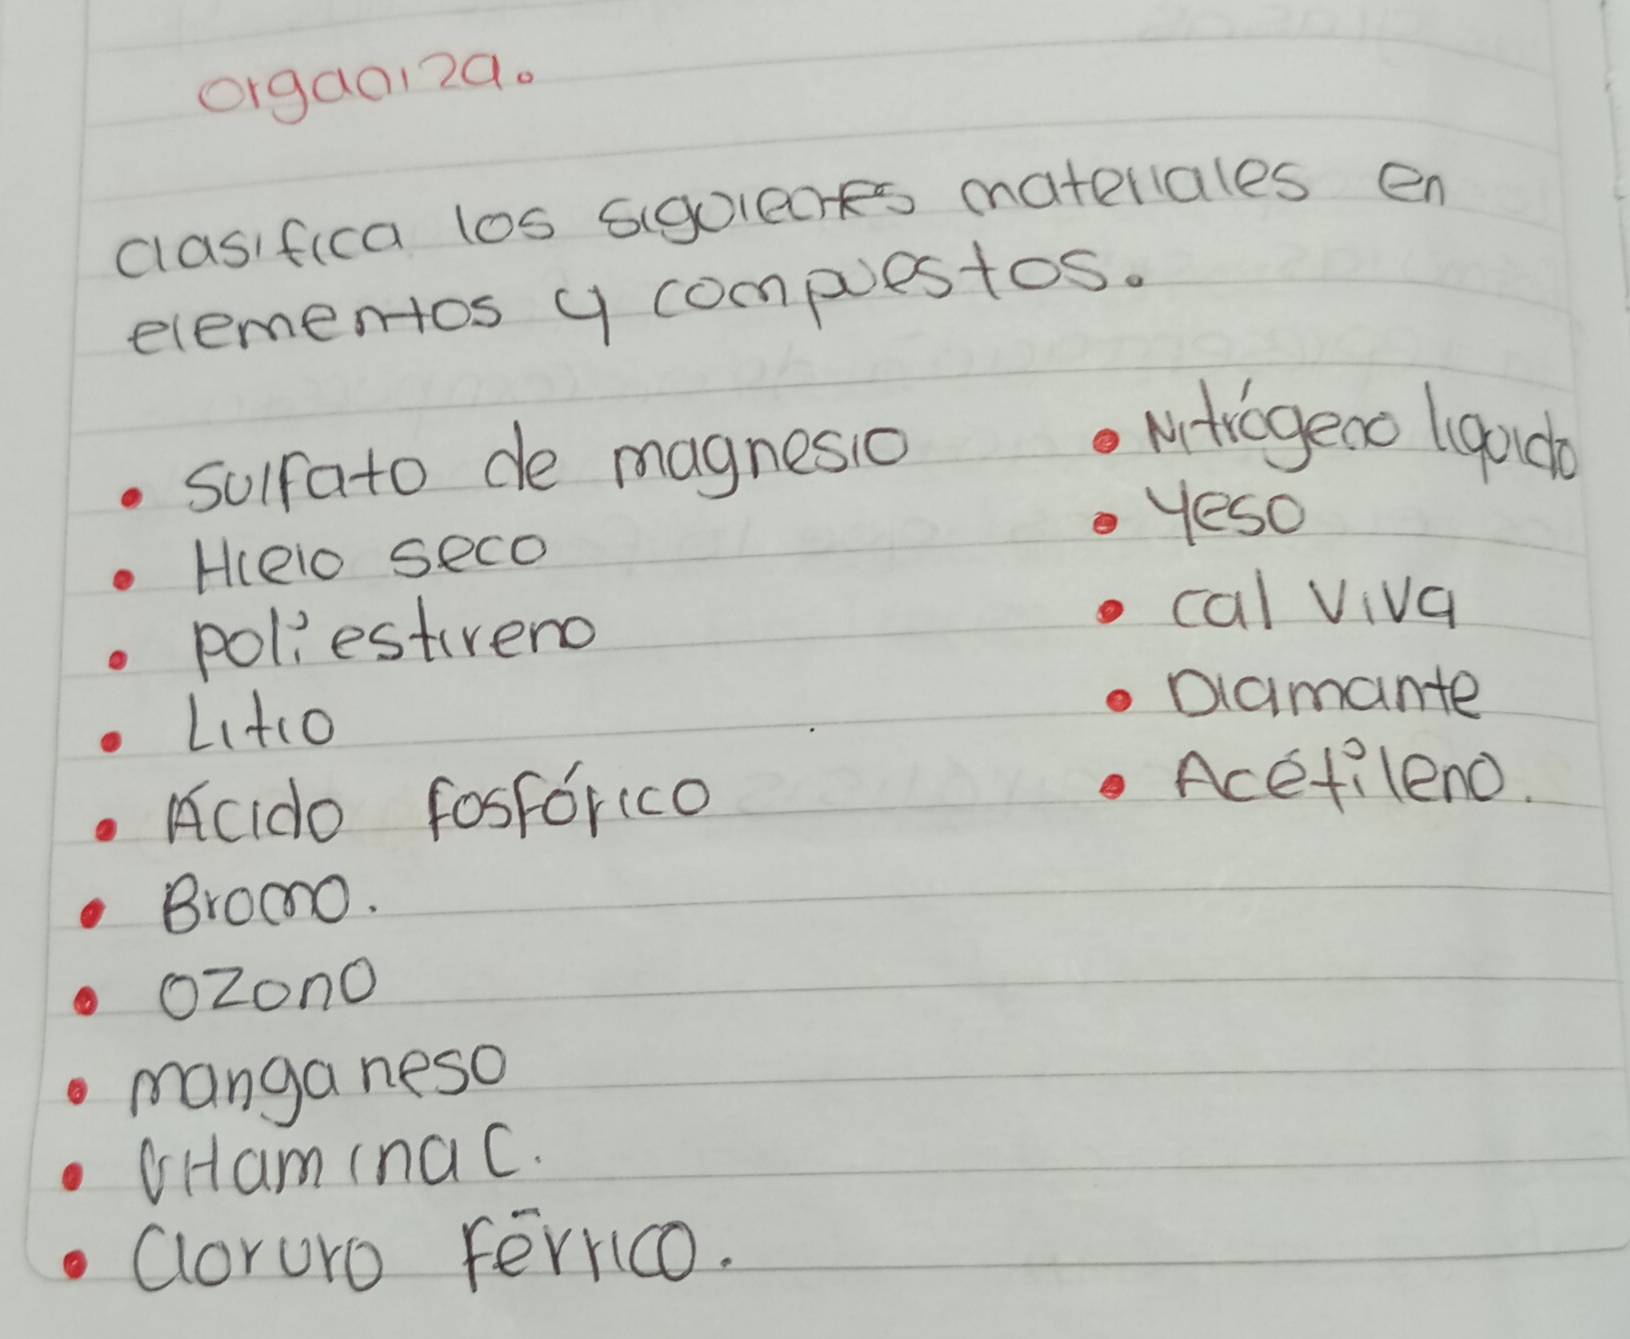 organiza.
clasifica los siguientes materiales en
elementos y compuestos.
• sulfato de magnesio
• Hielo seco
• poliestireno
• Litio
• Ácido fosfórico
• Bromo.
• Ozono
• manganeso
• Vitamina C.
• Cloruro Férrico.
• Nitrógeno líquido
• Yeso
• cal viva
• Diamante
• Acétileno.